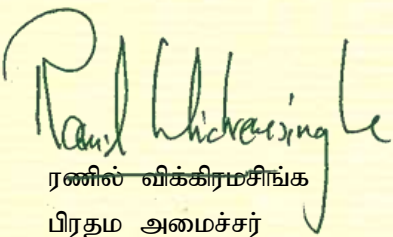 Ranil Wickremesinghe
ரணில் விக்கிரமசிங்க
பிரதம அமைச்சர்